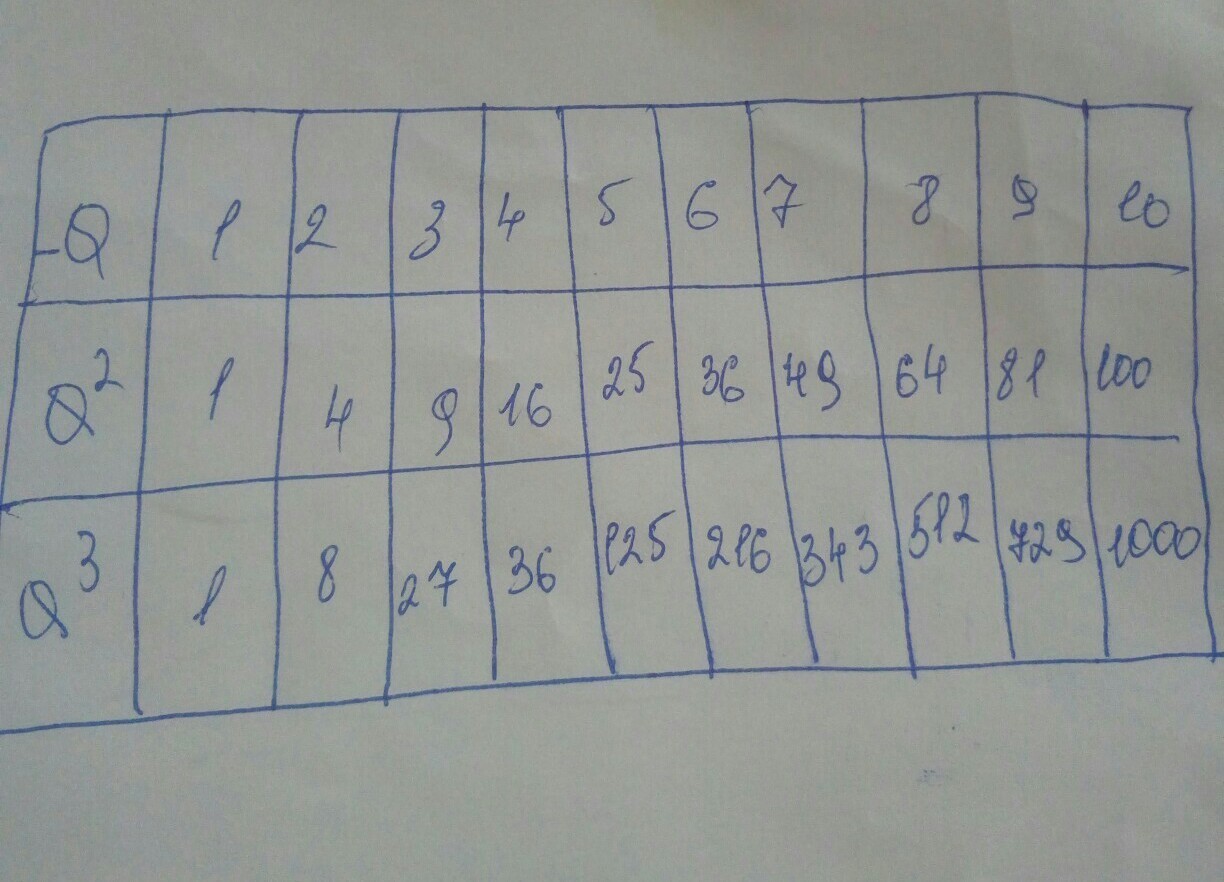 Q 1 2 3 4 5 6 7 8 9 10
Q² 1 4 9 16 25 36 49 64 81 100
Q³ 1 8 27 36 125 216 343 512 729 1000